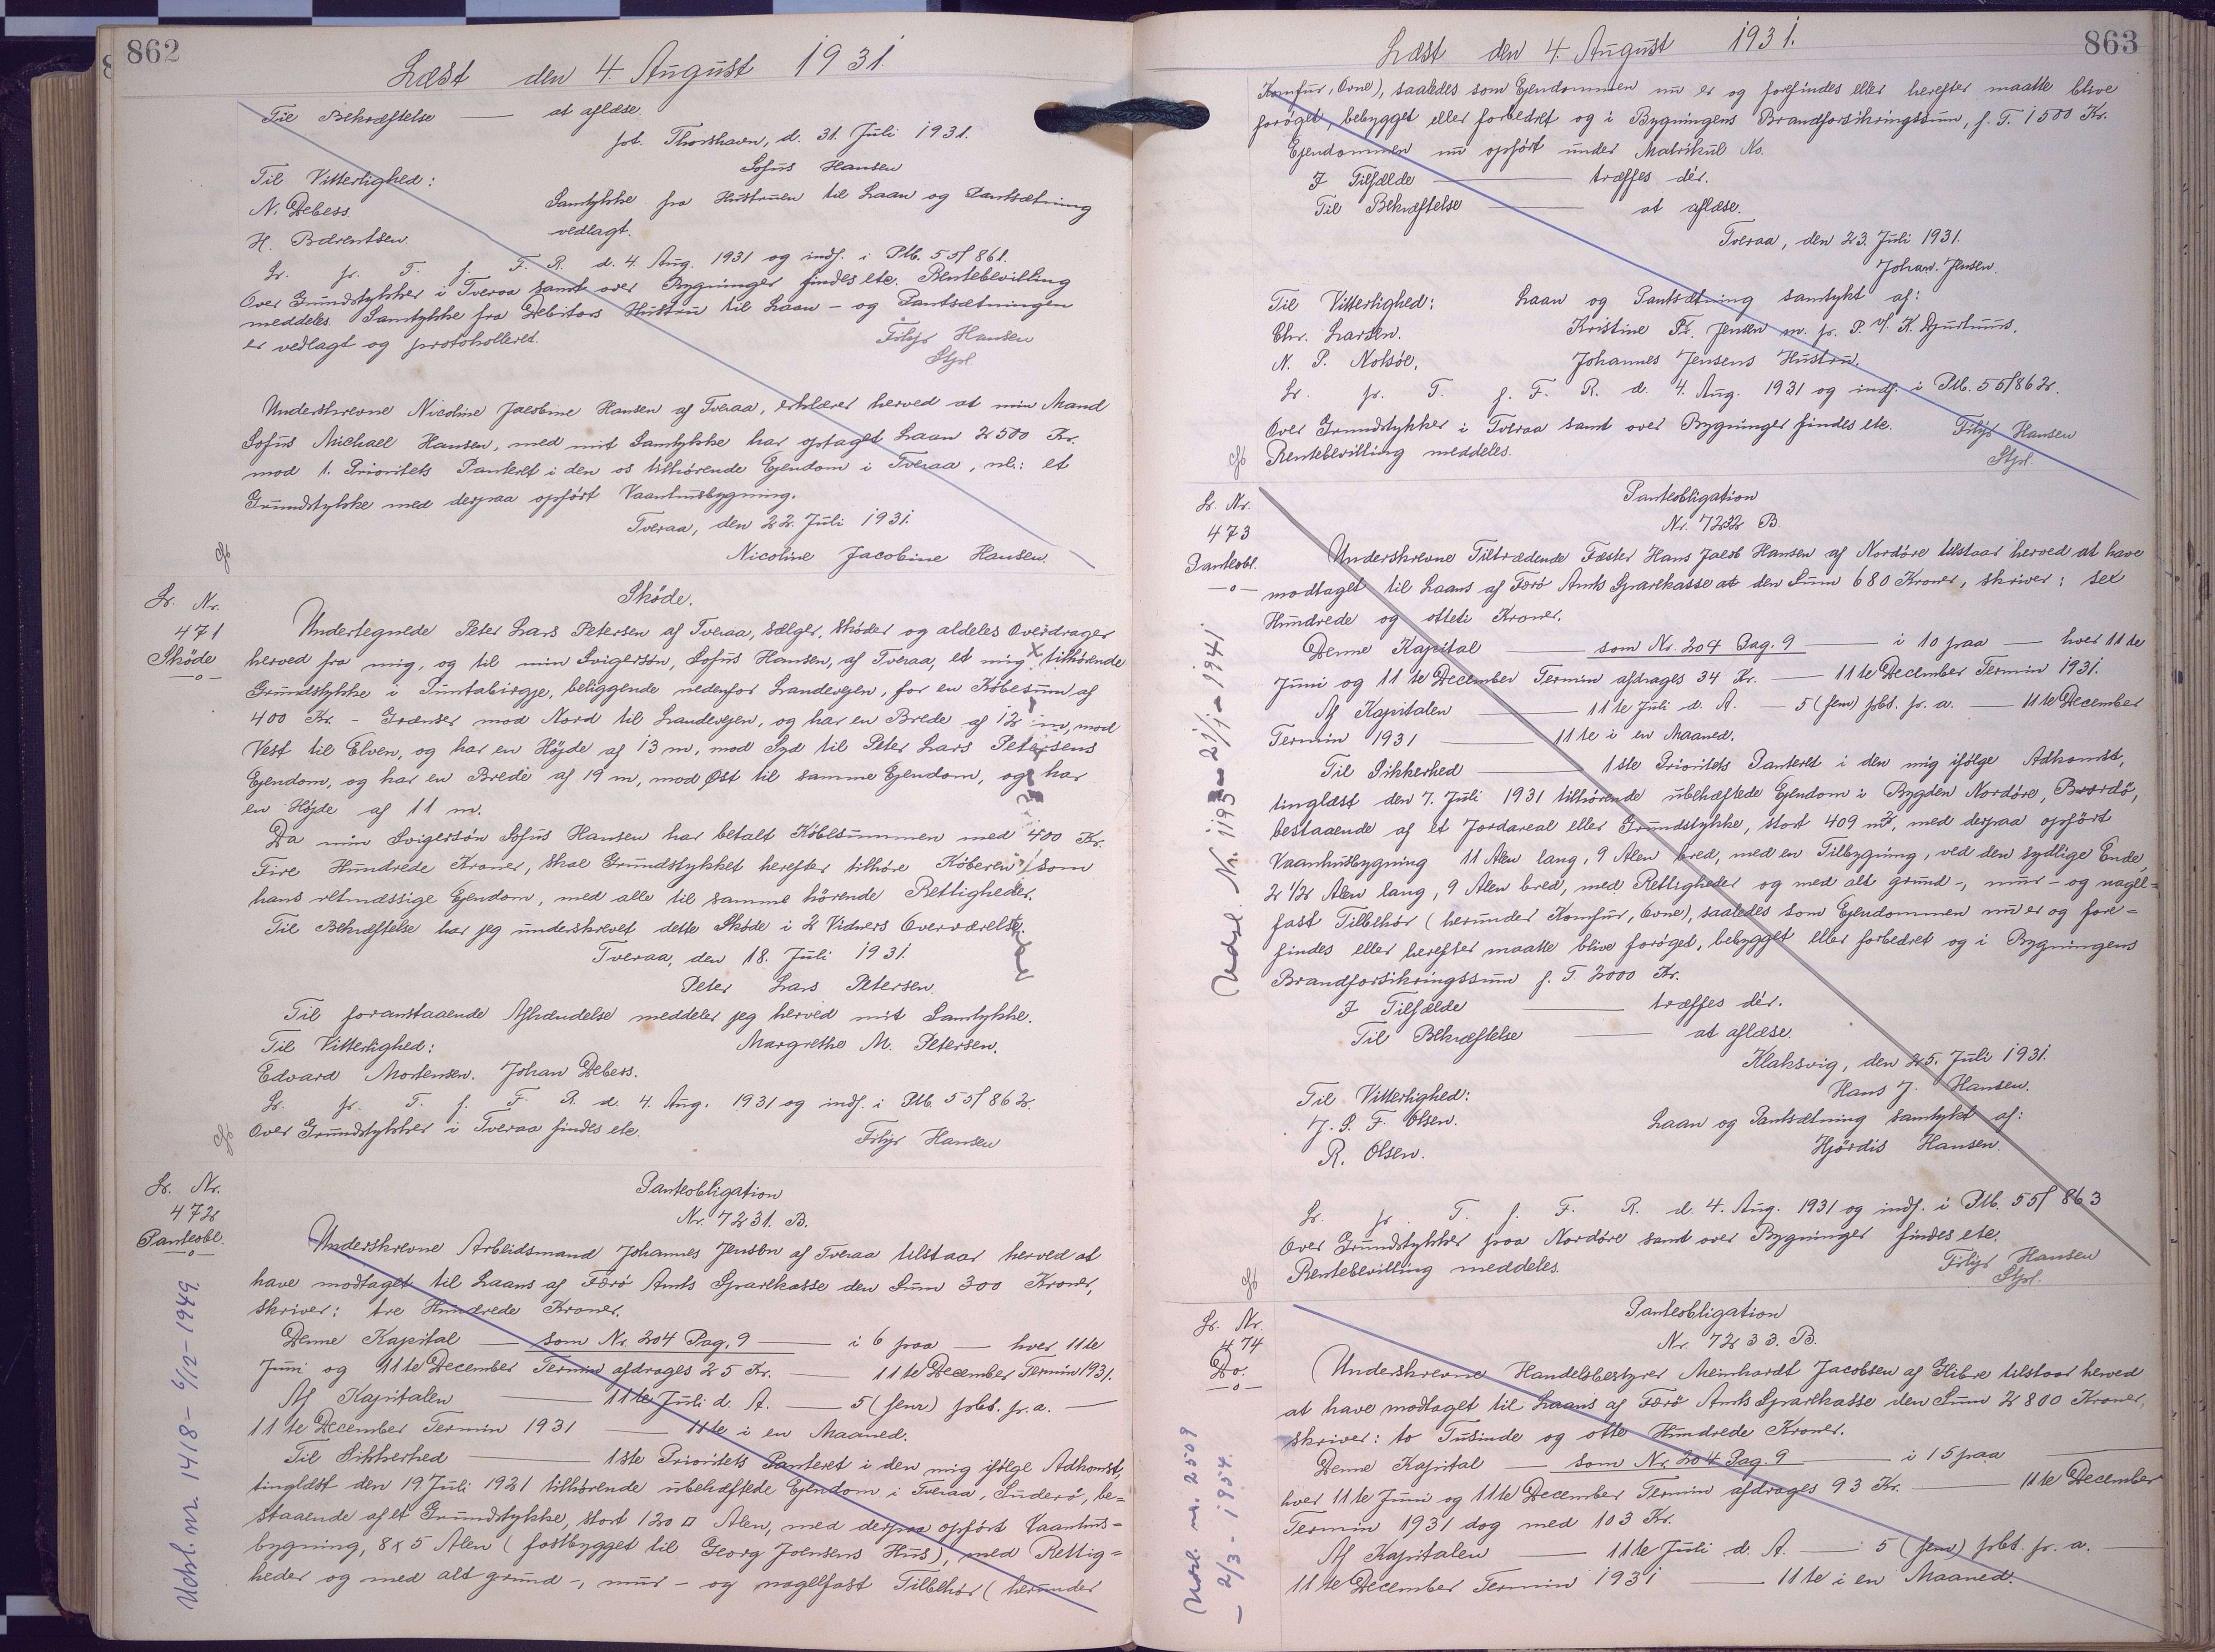 862
Læst den 4. August 1931.
Til Bekræftelse — at aflæse.
pt. Thorshavn, d. 31. Juli 1931.
Sofus Hansen
Til Vitterlighed:
N. Debess.
H. Bærentsen.
Samtykke fra Hustruen til Laan og Pantsætning
vedlagt.
Lr. fr. T. f. F. R. d. 4. Aug. 1931 og indf. i Ptb. 55/861.
Over Grundstykker i Tveraa samt over Bygninger findes etc. Rentebevilling
meddeles. Samtykke fra Debitors Hustru til Laan- og Pantsætningen
er vedlagt og protokolleret.
Filip Hansen
Stpl.
Underskrevne Nicoline Jacobine Hansen af Tveraa, erklærer herved at min Mand
Sofus Michael Hansen, med mit Samtykke har optaget Laan 2500 Kr.
mod 1. Prioritets Panteret i den os tilhørende Ejendom i Tveraa, nl: et
Grundstykke med derpaa opført Vaanhusbygning.
Tveraa, den 22. Juli 1931.
Nicoline Jacobine Hansen.
Lr. Nr.
471
Skøde
—o—
Skøde.
Undertegnede Peter Lars Petersen af Tveraa, sælger, skøder og aldeles Overdrager
herved fra mig, og til min Svigersøn, Sofus Hansen, af Tveraa, et mig tilhørende
Grundstykke i Puntabirgje, beliggende nedenfor Landevejen, for en Købesum af
400 Kr. - Grænser mod Nord til Landevejen, og har en Brede af 12 m, mod
Vest til Elven, og har en Højde af 13 m, mod Syd til Peter Lars Petersens
Ejendom, og har en Brede af 19 m, mod Øst til samme Ejendom, og har
en Højde af 11 m.
Da min Svigersøn Sofus Hansen har betalt Købesummen med 400 Kr.
Fire Hundrede Kroner, skal Grundstykket herefter tilhøre Køberen som
hans retmæssige Ejendom, med alle til samme hörende Rettigheder.
Til Bekræftelse har jeg underskrevet dette Skøde i 2 Vidners Overværelse.
Tveraa, den 18. Juli 1931.
Peter Lars Petersen.
Til foranstaaende Afhændelse meddeler jeg herved mit Samtykke.
Til Vitterlighed: Margrethe M. Petersen.
Edvard Mortensen. Johan Debess.
Lr. fr. T. f. F. R. d. 4. Aug. 1931 og indf. i Ptb. 55/862.
Over Grundstykker i Tveraa findes etc.
Filip Hansen
Lr. Nr.
472
Panteobl.
—o—
Udsl. nr. 1418 - 6/12 - 1949.
Panteobligation
Nr. 7231. B.
Underskrevne Arbeidsmand Johannes Jensen af Tveraa tilstaar herved at
have modtaget til Laans af Færø Amts Sparekasse den Sum 300 Kroner,
skriver: tre Hundrede Kroner.
Denne Kapital — som Nr. 204 Pag. 9 — i 6 paa — hver 11te
Juni og 11te December Termin afdrages 25 Kr. — 11te December Termin 1931.
Af Kapitalen — 11te Juli d. A. — 5 (fem) pbt. p. a. —
11te December Termin 1931 — 11te i en Maaned.
Til Sikkerhed — 1ste Prioritets Panteret i den mig ifølge Adkomst,
tinglæst den 19. Juli 1921 tilhørende ubehæftede Ejendom i Tveraa, Suderø, be=
staaende af et Grundstykke, stort 120 □ Alen, med derpaa opført Vaanhus=
bygning, 8 x 5 Alen (fastbygget til Georg Joensens Hus), med Rettig=
heder og med alt grund-, mur- og nagelfast Tilbehør (herunder
863
Læst den 4. August 1931.
Komfur, Ovne), saaledes som Ejendommen nu er og forefindes eller herefter maatte blive
forøget, bebygget eller forbedret og i Bygningens Brandforsikringssum, f. T. 1500 Kr.
Ejendommen nu opført under Matrikul No.
I Tilfælde — træffes dér.
Til Bekræftelse — at aflæse.
Tveraa, den 23. Juli 1931.
Johan. Jensen.
Til Vitterlighed: Laan og Pantsætning samtykt af:
Chr. Larsen. Kristine Fr. Jensen m. fr. P. v/ K. Djurhuus.
N. P. Nolsøe. Johannes Jensens Hustru.
Lr. fr. T. f. F. R. d. 4. Aug. 1931 og indf. i Ptb. 55/862.
Over Grundstykker i Tveraa samt over Bygninger findes etc.
Rentebevilling meddeles.
Filip Hansen
Stpl.
Lr. Nr.
473
Panteobl.
—o—
Panteobligation
Nr. 7232 B.
Underskrevne Tiltrædende Fæster Hans Jacob Hansen af Nordøre tilstaar herved at have
modtaget til Laans af Færø Amts Sparekasse at den Sum 680 Kroner, skriver: sex
Hundrede og otteti Kroner.
Denne Kapital — som Nr. 204 Pag. 9 — i 10 paa — hver 11te
Juni og 11te December Termin afdrages 34 Kr. — 11te December Termin 1931.
Af Kapitalen — 11te Juli d. A. — 5 (fem) pbt. p. a. — 11te December
Termin 1931 — 11te i en Maaned.
Til Sikkerhed — 1ste Prioritets Panteret i den mig ifølge Adkomst,
tinglæst den 7. Juli 1931 tilhørende ubehæftede Ejendom i Bygden Nordøre, Bordø,
bestaaende af et Jordareal eller Grundstykke, stort 409 m², med derpaa opført
Vaanhusbygning 11 Alen lang, 9 Alen bred, med en Tilbygning, ved den sydlige Ende,
2 1/2 Alen lang, 9 Alen bred, med Rettigheder og med alt grund-, mur- og nagel=
fast Tilbehør (herunder Komfur, Ovne), saaledes som Ejendommen nu er og fore=
findes eller herefter maatte blive forøget, bebygget eller forbedret og i Bygningens
Brandforsikringssum f. T. 2000 Kr.
I Tilfælde — træffes dér.
Til Bekræftelse — at aflæse.
Klaksvig, den 25. Juli 1931.
Hans J. Hansen.
Til Vitterlighed:
J. P. F. Olsen. Laan og Pantsætning samtykt af:
R. Olsen. Hjördis Hansen.
Lr. fr. T. f. F. R. d. 4. Aug. 1931 og indf. i Ptb. 55/863
Over Grundstykker paa Nordøre samt over Bygninger findes etc.
Rentebevilling meddeles.
Filip Hansen
Stpl.
Lr. Nr.
474
Do.
—o—
Udsl. nr. 2509
- 2/3 - 1954.
Panteobligation
Nr. 7233. B.
Underskrevne Handelsbestyrer Meinhardt Jacobsen af Glibre tilstaar herved
at have modtaget til Laans af Færø Amts Sparekasse den Sum 2800 Kroner,
skriver: to Tusinde og otte Hundrede Kroner.
Denne Kapital — som Nr. 204 Pag. 9 — i 15 paa —
hver 11te Juni og 11te December Termin afdrages 93 Kr. — 11te December
Termin 1931 dog med 103 Kr.
Af Kapitalen — 11te Juli d. A. — 5 (fem) pbt. p. a. —
11te December Termin 1931 — 11te i en Maaned.